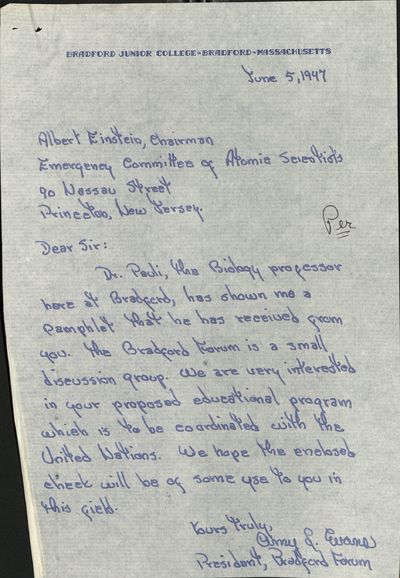 BRADFORD JUNIOR COLLEGE-BRADFORD-MASSACHUSETTS
June 5, 1947
Albert Einstein, Chairman
Emergency Committee of Atomic Scientists
90 Nassau Street
Princeton, New Jersey.
Per
Dear Sir:
Dr. Pauli, the Biology professor
here at Bradford, has shown me a
pamphlet that he has received from
you. The Bradford Forum is a small
discussion group. We are very interested
in your proposed educational program
which is to be coordinated with the
United Nations. We hope the enclosed
check will be of some use to you in
this field.
Yours truly,
Amy J. Evans
President, Bradford Forum